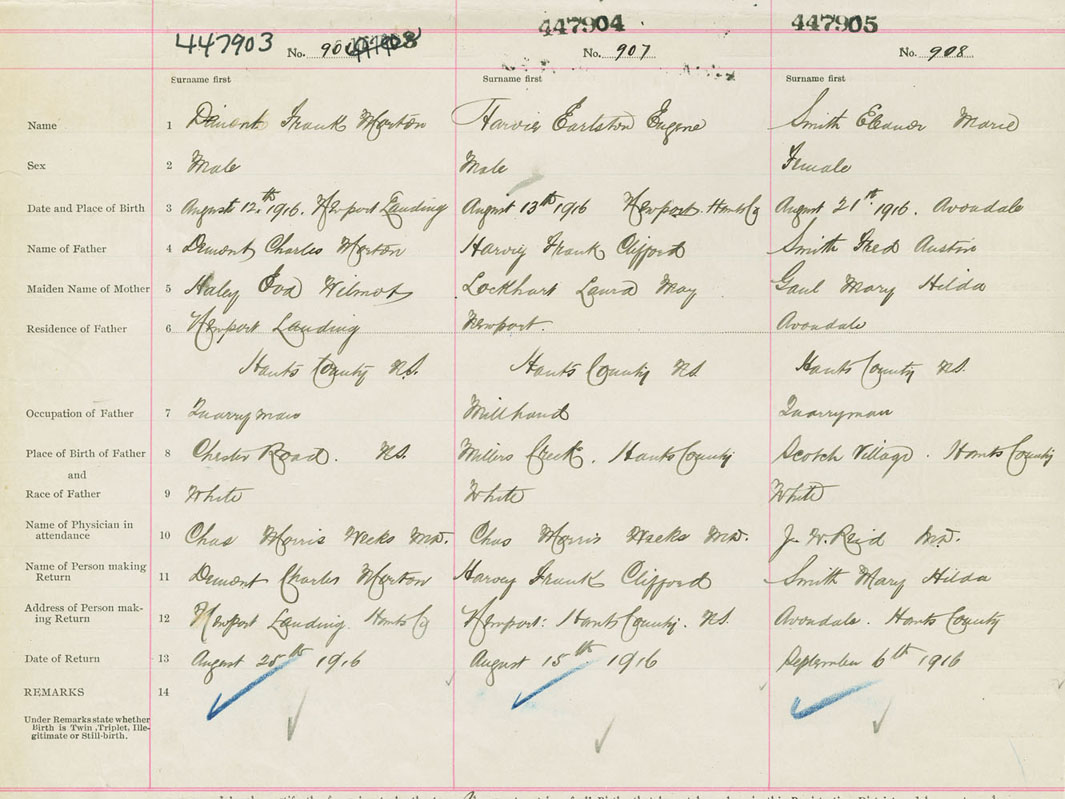 447903 447904 447905
No. 906 No. 907 No. 908
Surname first Surname first Surname first
Name 1 Dimont Frank Morton Harvie Earlston Eugene Smith Eleanor Marie
Sex 2 Male Male Female
Date and Place of Birth 3 August 12th 1916. Newport Landing August 13th 1916 Newport Hants Co August 21st 1916. Avondale
Name of Father 4 Dimont Charles Morton Harvey Frank Clifford Smith Fred Austin
Maiden Name of Mother 5 Haley Eva Wilmot Lockhart Laura May Gaul Mary Hilda
Residence of Father 6 Newport Landing Newport. Avondale
Hants County N.S. Hants County N.S. Hants County N.S.
Occupation of Father 7 Quarryman Millhand Quarryman
Place of Birth of Father 8 Chester Road. N.S. Millers Creek. Hants County Scotch Village. Hants County
and
Race of Father 9 White White White
Name of Physician in
attendance 10 Chas Morris Weeks M.D. Chas Morris Weeks M.D. J. W. Reid M.D.
Name of Person making
Return 11 Dimont Charles Morton Harvey Frank Clifford Smith Mary Hilda
Address of Person mak-
ing Return 12 Newport Landing. Hants Co Newport: Hants County. N.S. Avondale. Hants County
Date of Return 13 August 25th 1916 August 15th 1916 September 6th 1916
REMARKS 14
Under Remarks state whether
Birth is Twin, Triplet, Ille-
gitimate or Still-birth.